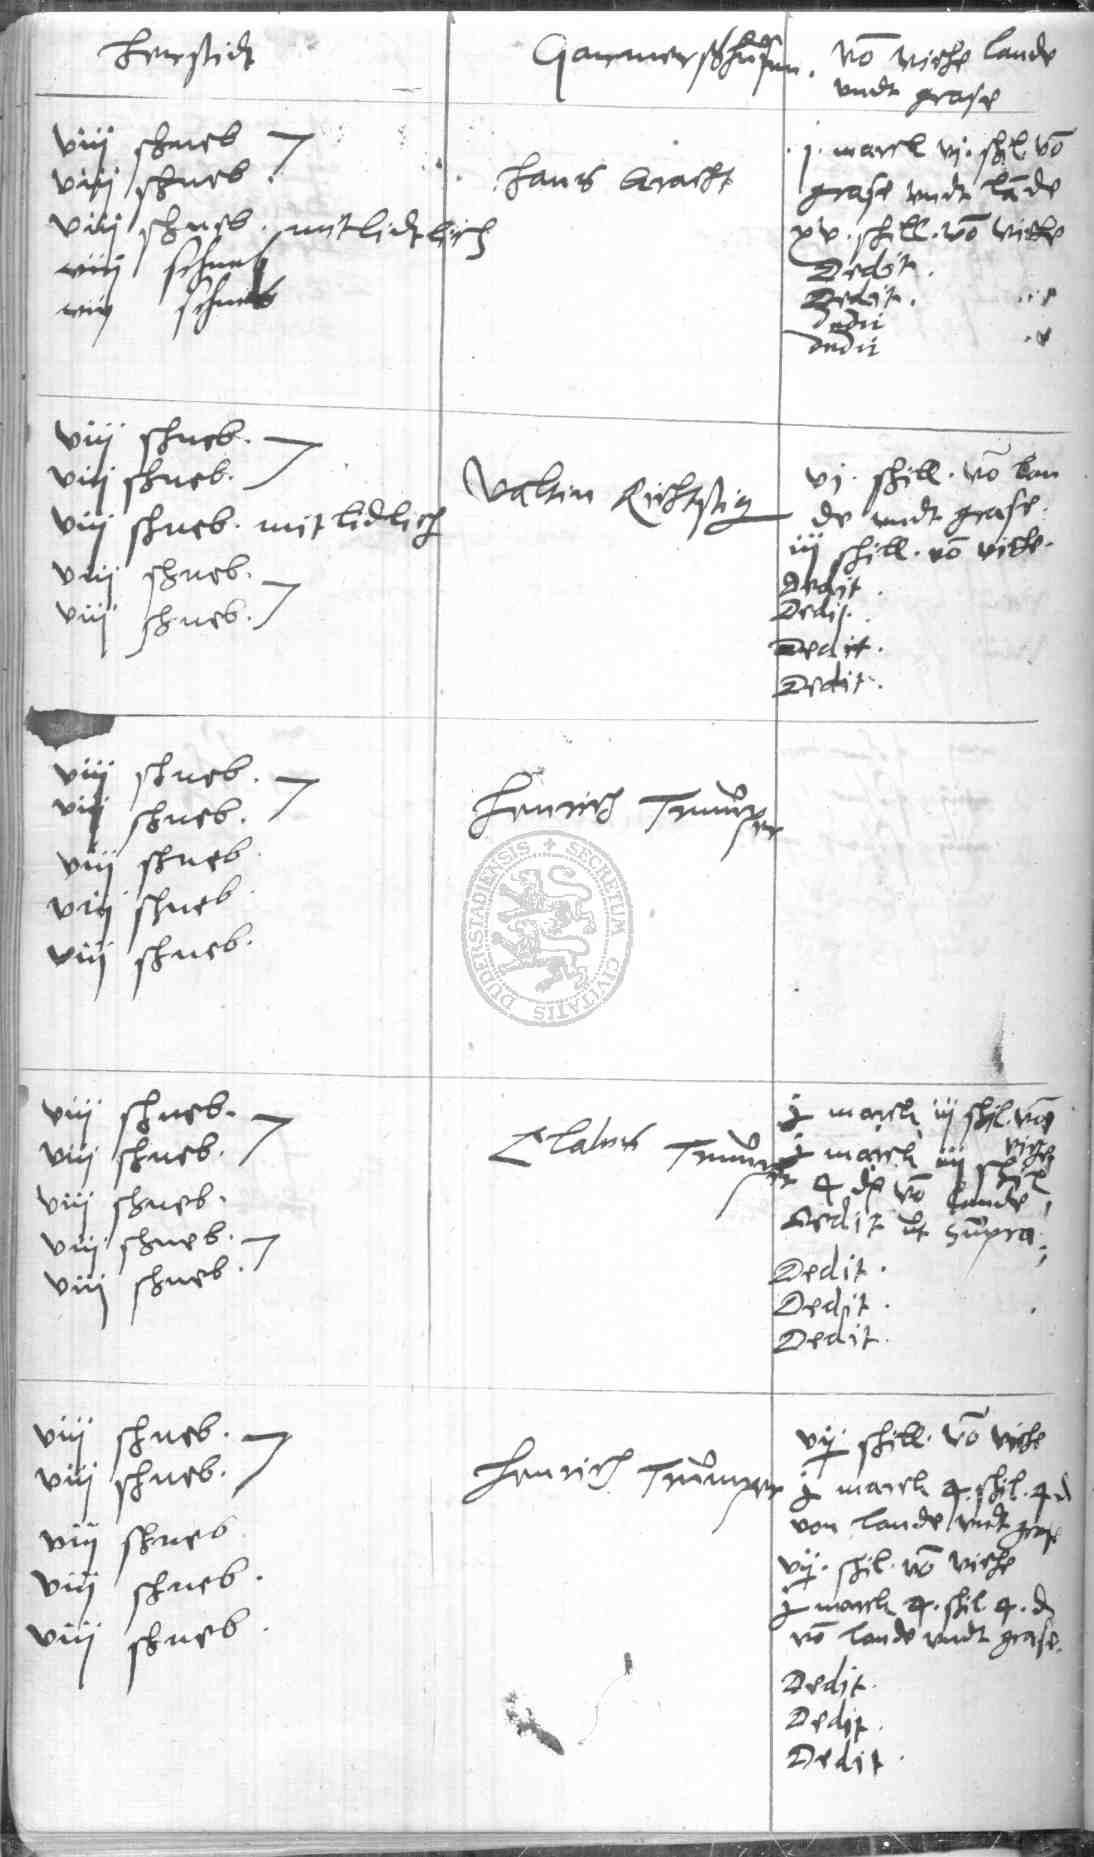 Herstidt
Garmershusen. vō viehe lande
vndt grase
viij schneb
viij schneb.
viij schneb. mitlidtlich
viij schneb
viij schneb
Hans Bracht
j. marck vj. schil. vō
grase vndt lāde
xv. schill. vō viehe
Dedit.
Dedit.
dedit
dedit
viij schneb.
viij schneb.
viij schneb. mitlidlich
viij schneb.
viij schneb.
Valtin Richtstig
vj. schill. vō lan
de vndt grase.
iij schill. vō viehe.
Dedit.
Dedit.
Dedit.
Dedit.
viij schneb.
viij schneb.
viij schneb.
viij schneb.
viij schneb.
Henrich Trumper
SECRETUM CIVITATIS DUDERSTADIENSIS
viij schneb.
viij schneb.
viij schneb.
viij schneb.
viij schneb.
Clawes Trumper
j marck iij schil. vō
viehe
j marck iij schil
4 d vō lande
Dedit ut supra
Dedit.
Dedit.
Dedit.
viij schneb.
viij schneb.
viij schneb
viij schneb.
viij schneb.
Henrich Trumper
vij. schill. vō viehe
j marck 4. schil. 4 d
von lande vndt grase
vij. schil. vō viehe
j marck 4. schil. 4. d
vō lande vndt grase.
Dedit.
Dedit.
Dedit.